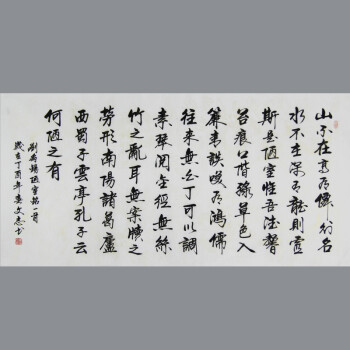 山不在高有僊則名
水不在深有龍則靈
斯是陋室惟吾德馨
苔痕上階綠草色入
簾青談笑有鴻儒
往來無白丁可以調
素琴閱金經無絲
竹之亂耳無案牘之
勞形南陽諸葛廬
西蜀子雲亭孔子云
何陋之有
劉禹錫陋室銘一首
歲在丁酉年